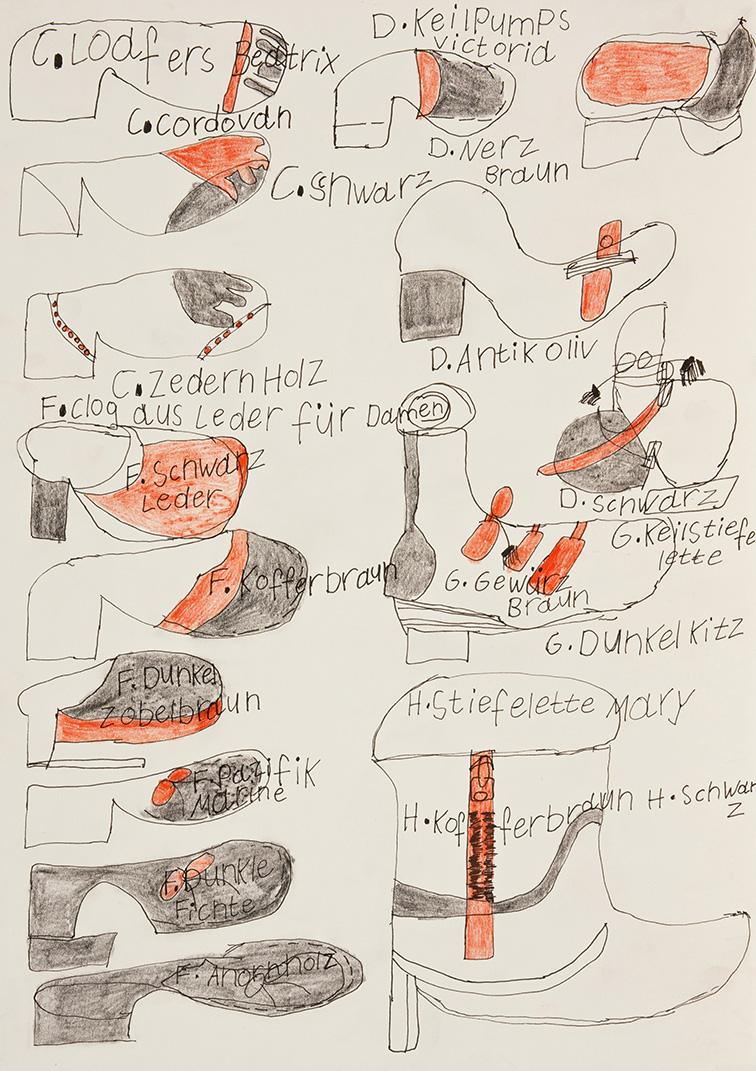 C. Loafers Beatrix
C. Cordovan
C. Schwarz
C. Zedern Holz
F. Clog aus Leder für Damen
F. Schwarz
Leder
F. Kofferbraun
F. Dunkel
Zobelbraun
F. Pazifik
Marine
F. Dunkle
Fichte
F. Ahornholz
D. Keilpumps
Victoria
D. Nerz
Braun
D. Antik oliv
D. Schwarz
G. Keilstiefe
lette
G. Gewürz
Braun
G. Dunkel Kitz
H. Stiefelette Mary
H. Kofferbraun H. Schwar
z